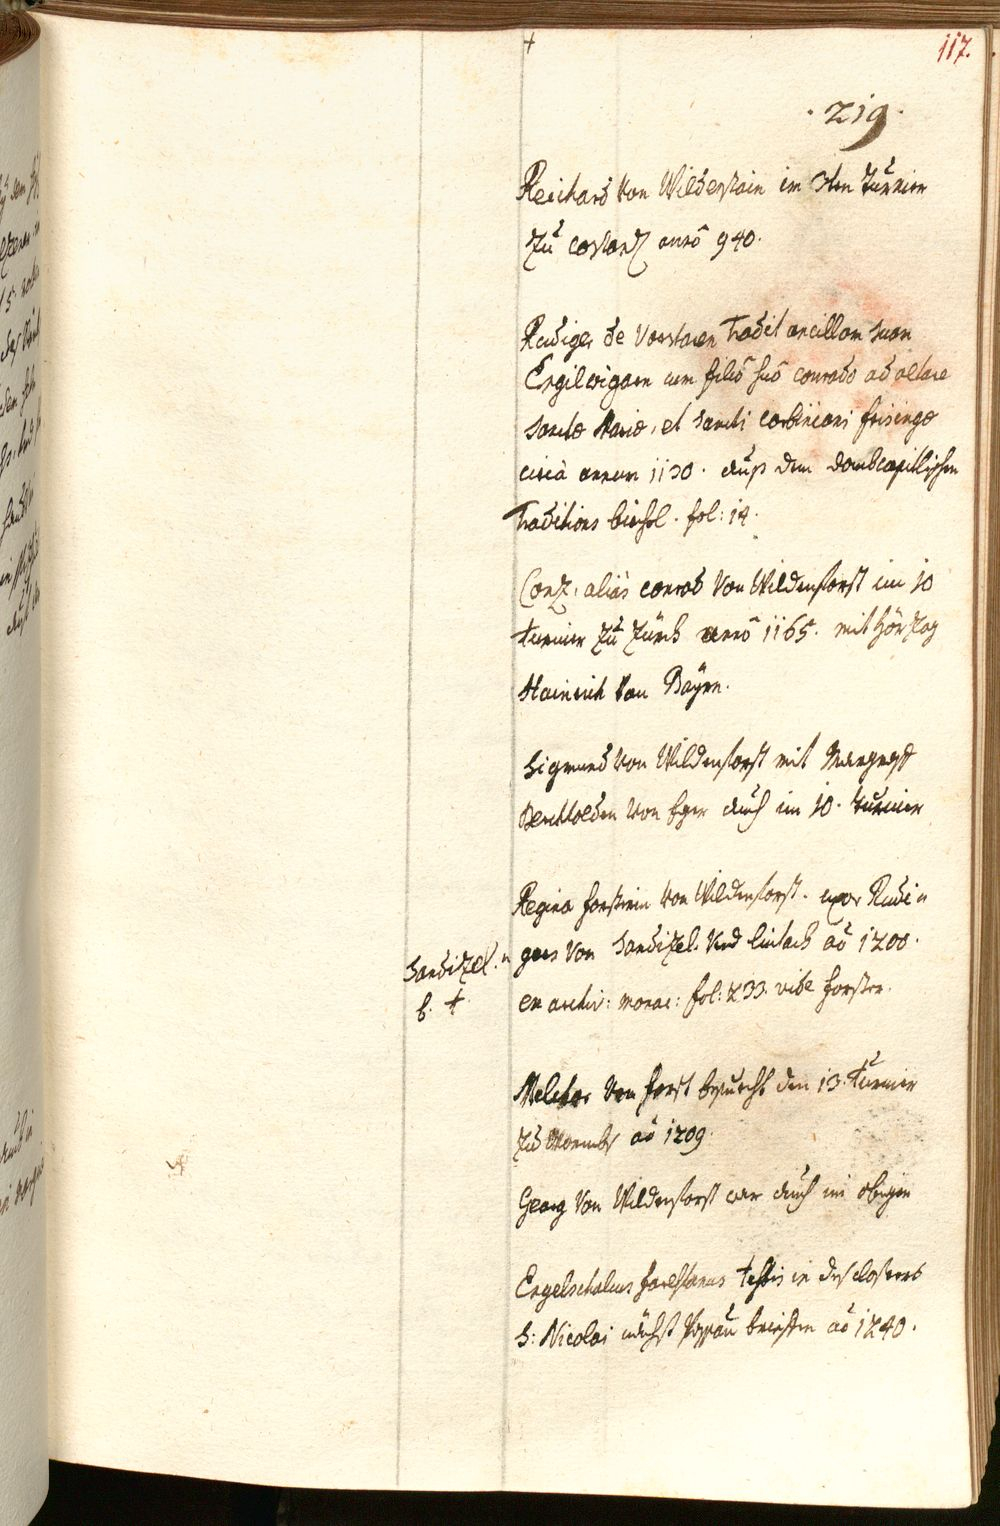 +
117.
· 219 ·
Reichard von Wildenstain im 3ten Turnier
zu Costanz anno 940.
Rudiger de tradit ancillam suam
Engilwigam cum filio suo conrado ad altare
Sancte Marie, et Sancti Corbiniani frisinge
circa annum 1130. auß dem dombcapitlischen
traditions biechl. fol: 14.
Conz, alias conrad von Wildenforst im 10
turnier zu Zürch anno 1165. mit Hörzog
Hainrich von Bayrn.
Sigmund von Wildenforst mit Margraff
Berchtolden von Eger auch im 10. turnier
Regina forsterin von Wildenforst. uxor Rudi
gers von Sandizel und Linbach ao 1200.
Sandizel.
f. +
ex archiv: monac: fol: 233. vide forster.
Melchor von Forst besuecht den 13. turnier
zu Wormbs ao 1209.
Georg von Wildenforst war auch im obigen
Engelschalcus testis in des closters
S: Nicolai nächst Passau brieffen ao 1240.